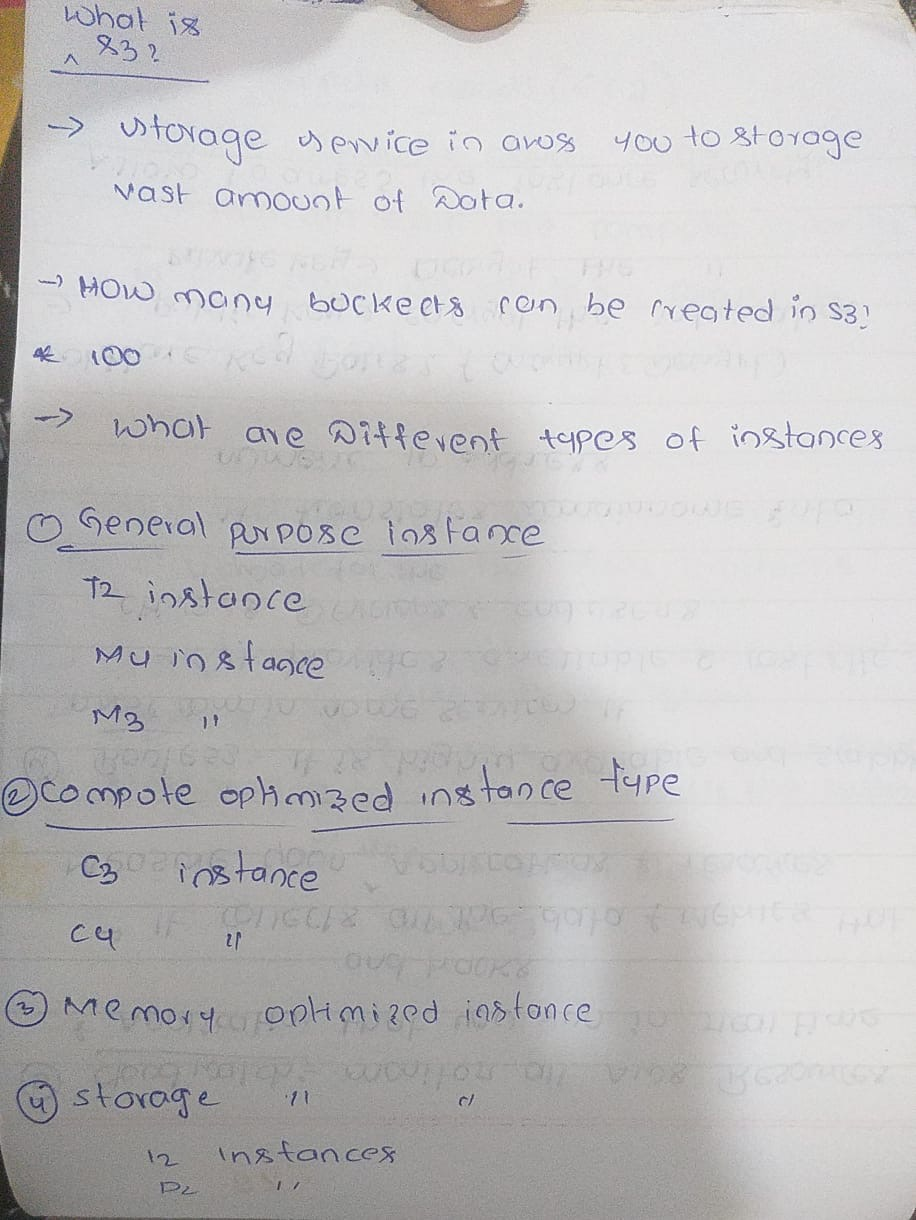 What is
^ S3?
→ storage service in aws you to storage
vast amount of Data.
→ How many buckeets can be created in S3?
* 100
→ What are Different types of instances
① General purpose instance
T2 instance
M4 instance
M3 "
② compute optimized instance type
C3 instance
C4 "
③ Memory optimized instance
④ storage " "
I2 instances
D2 "